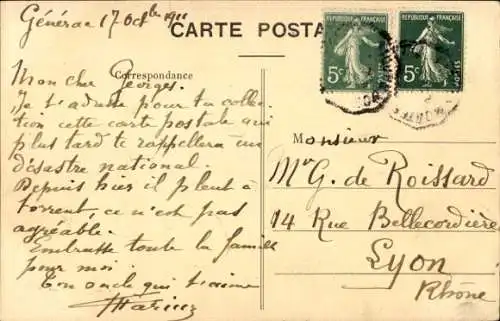 Générac 17 Octbre 1911
CARTE POSTA
Correspondance
RÉPUBLIQUE FRANÇAISE
5c
POSTES
RÉPUBLIQUE FRANÇAISE
5c
POSTES
Mon cher Georges.
Je t'adresse pour ta collec-
tion cette carte postale qui
plus tard te rappellera un
désastre national.
Depuis hier il pleut à
torrent, ce n'est pas
agréable.
Embrasse toute la famille
pour moi.
Ton oncle qui t'aime
Monsieur
Mr G. de Roissard
14 Rue Bellecordière
Lyon
Rhône